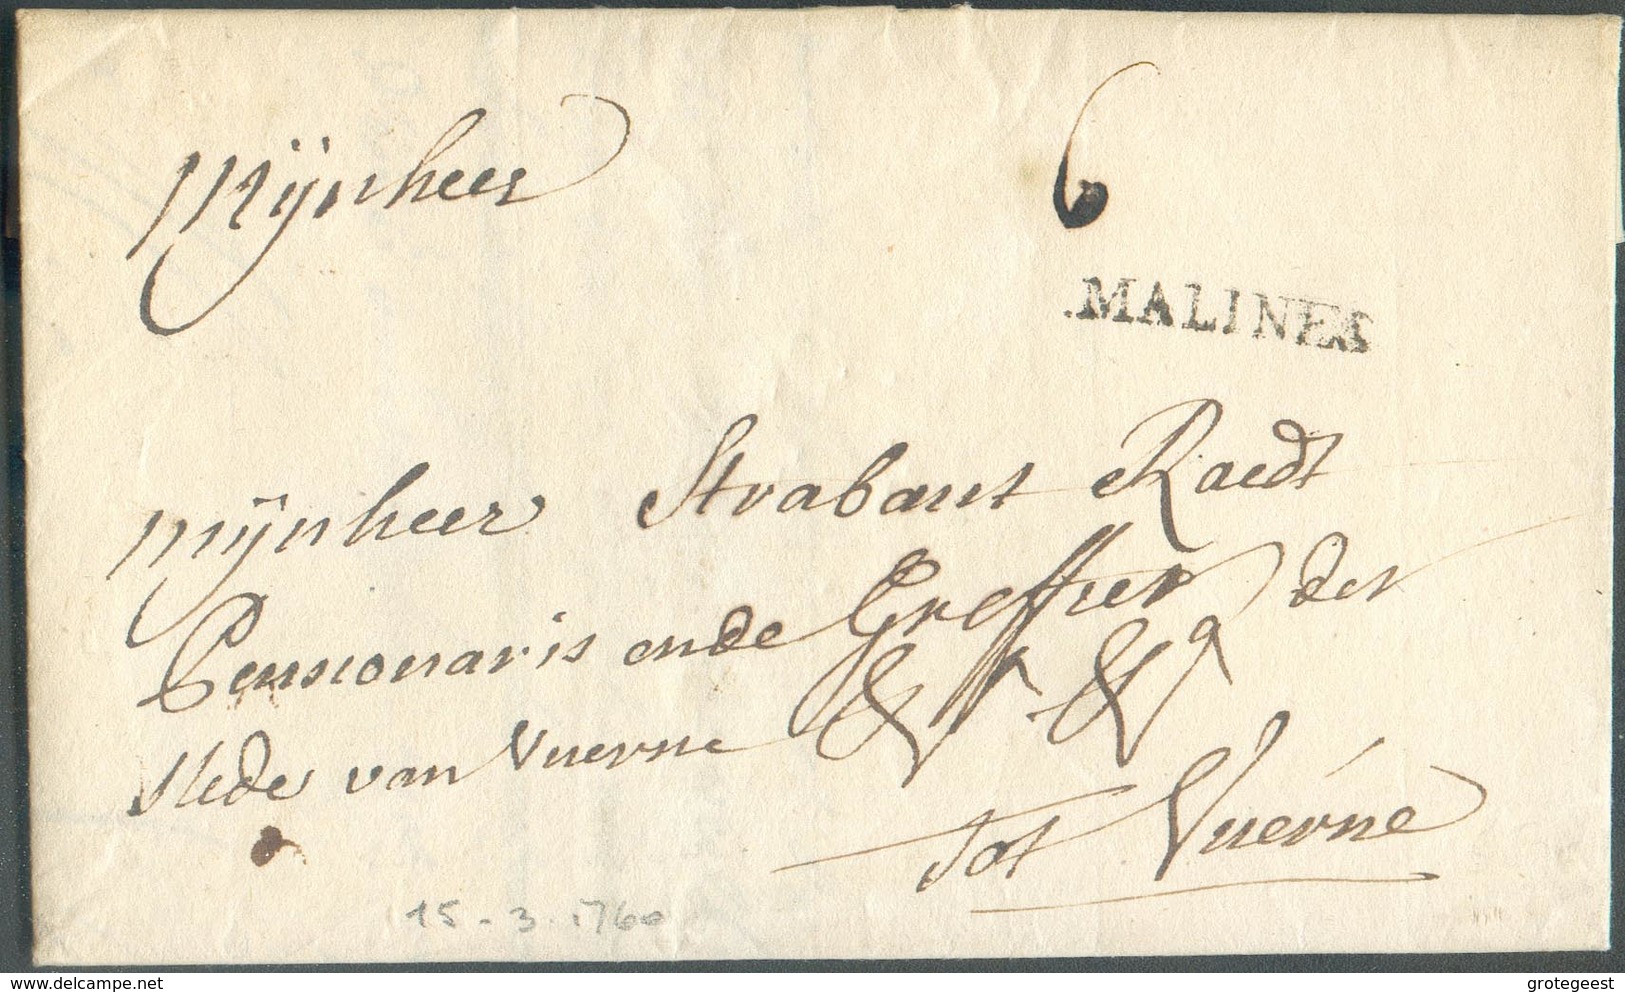 Mijnheer
6
.MALINES
Mijnheer Strabant Raedt
Pensionaris ende Greffier der
stede van Vuerne &a &a
Tot Vuerne
15 - 3 - 1760
delcampe.net
grotegeest